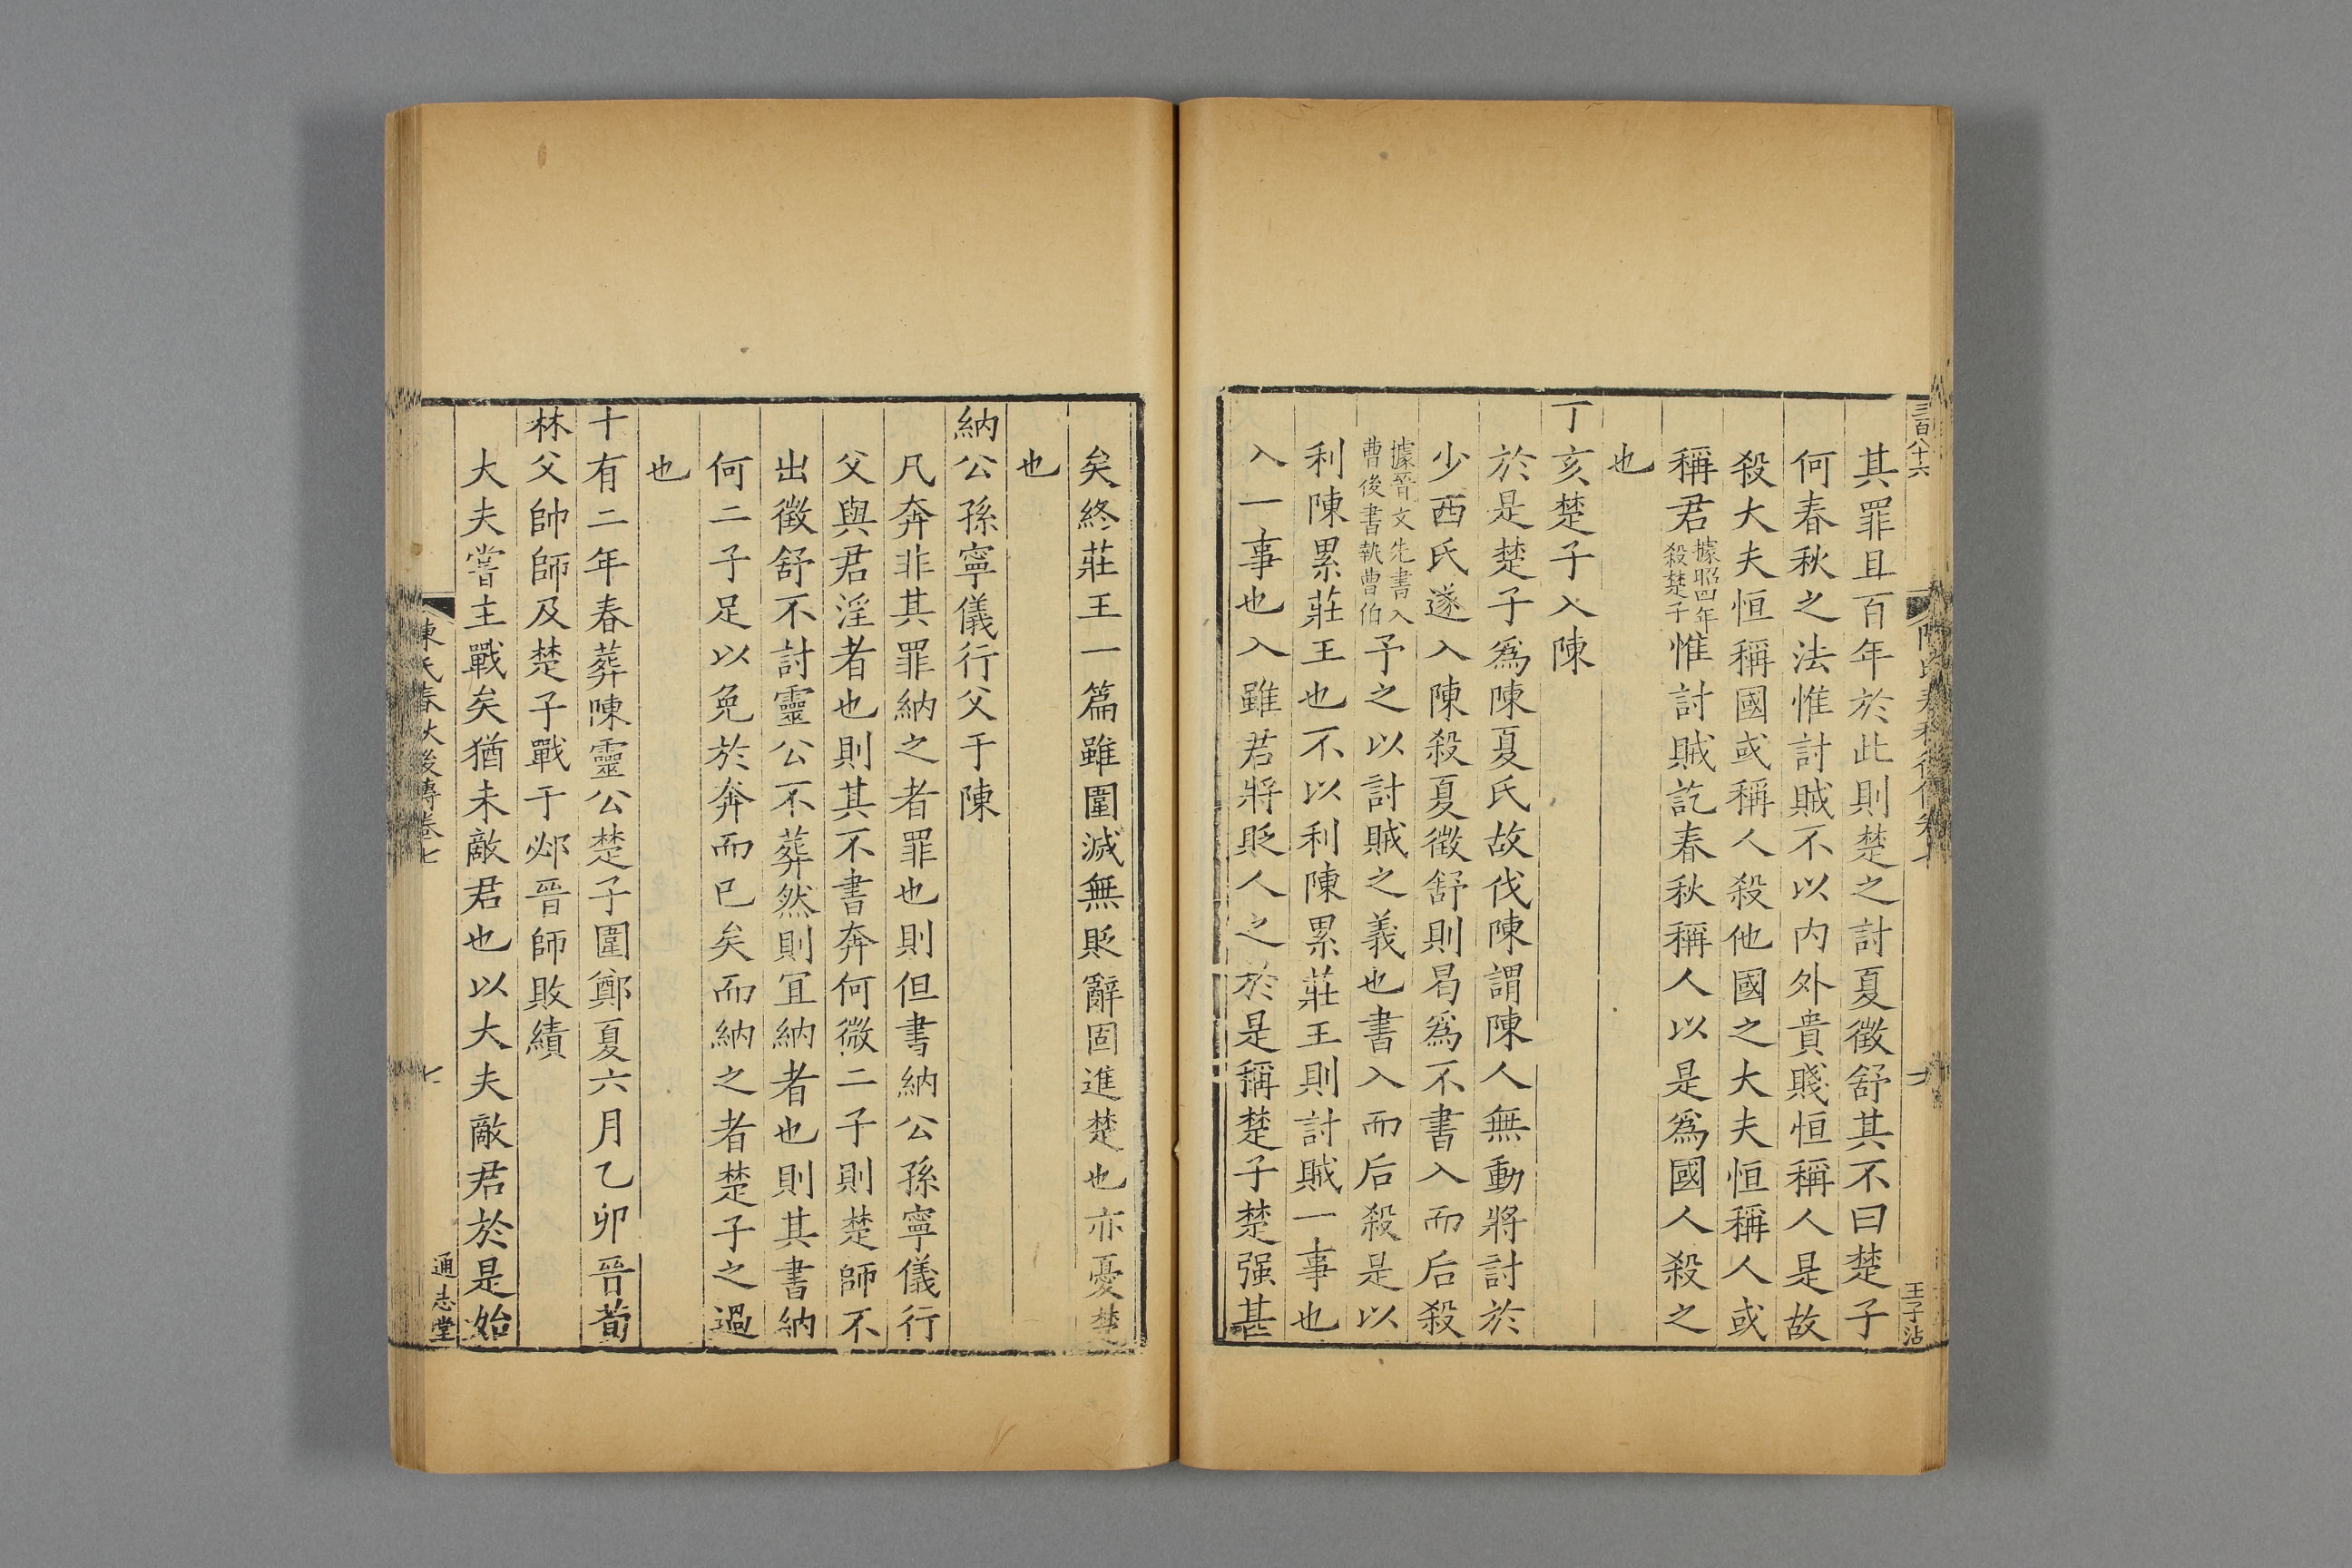 三百八十六
王子沾
其罪且百年於此則楚之討夏徵舒其不曰楚子
何春秋之法惟討賊不以内外貴賤恒稱人是故
殺大夫恒稱國或稱人殺他國之大夫恒稱人或
稱君據昭四年殺楚子惟討賊訖春秋稱人以是爲國人殺之
也
丁亥楚子入陳
於是楚子爲陳夏氏故伐陳謂陳人無動將討於
少西氏遂入陳殺夏徵舒則曷爲不書入而后殺
據晉文先書入曹後書執曹伯予之以討賊之義也書入而后殺是以
利陳累莊王也不以利陳累莊王則討賊一事也
入一事也入雖若將貶人之於是稱楚子楚强甚
矣終莊王一篇雖圍滅無貶辭固進楚也亦憂楚
也
納公孫寧儀行父于陳
凡奔非其罪納之者罪也則但書納公孫寧儀行
父與君淫者也則其不書奔何微二子則楚師不
出徵舒不討靈公不葬然則宜納者也則其書納
何二子足以免於奔而已矣而納之者楚子之過
也
十有二年春葬陳靈公楚子圍鄭夏六月乙卯晉荀
林父帥師及楚子戰于邲晉師敗績
大夫嘗主戰矣猶未敵君也以大夫敵君於是始
陳氏春秋後傳卷七
七
通志堂